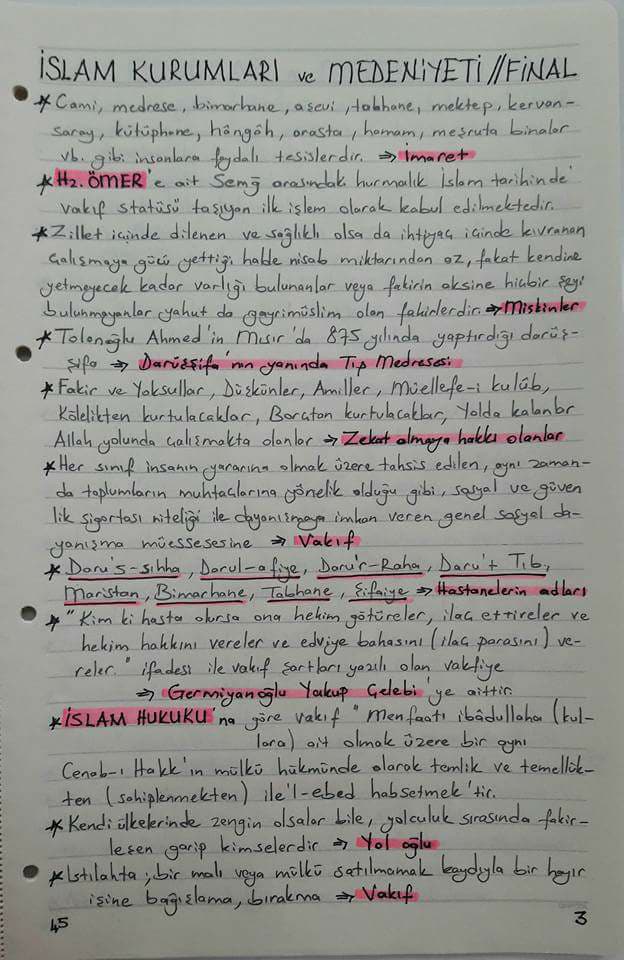 İSLAM KURUMLARI ve MEDENİYETİ // FİNAL
* Cami, medrese, bimarhane, aşevi, tabhane, mektep, kervan-
saray, kütüphane, hângâh, arasta, hamam, meşruta binalar
vb. gibi insanlara faydalı tesislerdir. ⇒ İmaret
* Hz. ÖMER'e ait Semğ arasındaki hurmalık İslam tarihinde
vakıf statüsü taşıyan ilk işlem olarak kabul edilmektedir.
* Zillet içinde dilenen ve sağlıklı olsa da ihtiyaç içinde kıvranan
çalışmaya gücü yettiği halde nisab miktarından az, fakat kendine
yetmeyecek kadar varlığı bulunanlar veya fakirin aksine hiçbir şeyi
bulunmayanlar yahut da gayrimüslim olan fakirlerdir. ⇒ Miskinler
* Tolonoğlu Ahmed'in Mısır'da 875 yılında yaptırdığı darüş-
şifa ⇒ Darüşşifa'nın yanında Tıp Medresesi
* Fakir ve Yoksullar, Düşkünler, Amiller, Müellefe-i kulûb,
Kölelikten kurtulacaklar, Borçtan kurtulacaklar, Yolda kalanlar
Allah yolunda çalışmakta olanlar ⇒ Zekat almaya hakkı olanlar
* Her sınıf insanın yararına olmak üzere tahsis edilen, aynı zaman-
da toplumların muhtaçlarına yönelik olduğu gibi, sosyal ve güven
lik sigortası niteliği ile dayanışmaya imkan veren genel sosyal da-
yanışma müessesesine ⇒ Vakıf
* Daru's-sıhha, Darul-afiye, Daru'r-Raha, Daru't Tıb,
Maristan, Bimarhane, Tabhane, Şifaiye ⇒ Hastanelerin adları
* "Kim ki hasta olursa ona hekim götüreler, ilaç ettireler ve
hekim hakkını vereler ve edviye bahasını (ilaç parasını) ve-
reler." ifadesi ile vakıf şartları yazılı olan vakfiye
⇒ Germiyanoğlu Yakup Çelebi'ye aittir.
* İSLAM HUKUKU'na göre vakıf "Menfaatı ibâdullaha (kul-
lara) ait olmak üzere bir aynı
Cenab-ı Hakk'ın mülkü hükmünde olarak temlik ve temellük-
ten (sahiplenmekten) ile'l-ebed habsetmek'tir.
* Kendi ülkelerinde zengin olsalar bile, yolculuk sırasında fakir-
leşen garip kimselerdir ⇒ Yol oğlu
* Istılahta; bir malı veya mülkü satılmamak kaydıyla bir hayır
işine bağışlama, bırakma ⇒ Vakıf
45
3